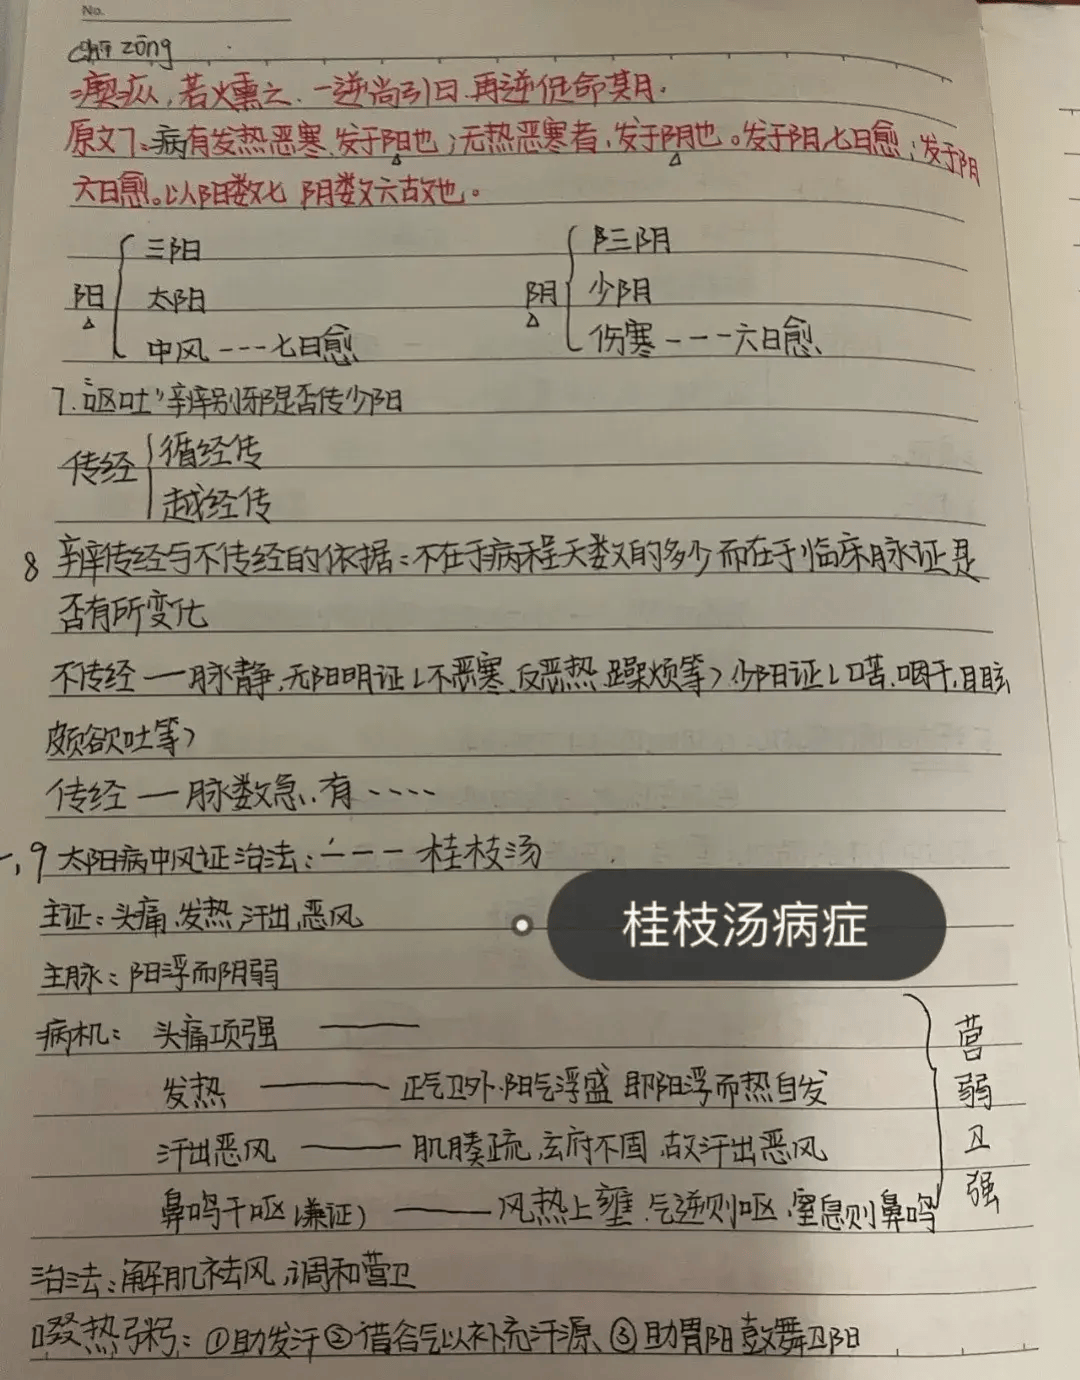 No.
chī zōng
瘈疭,若火熏之.一逆尚引日.再逆促命其月.
原文7.病有发热恶寒,发于阳也;无热恶寒者,发于阴也。发于阳,七日愈;发于阴
六日愈。以阳数七 阴数六故也。
阳 三阳
太阳
中风---七日愈
阴 三阴
少阴
伤寒---六日愈
7."呕吐"辨别邪是否传少阳
传经 循经传
越经传
8 辨传经与不传经的依据:不在于病程天数的多少而在于临床脉证是
否有所变化
不传经一脉静,无阳明证(不恶寒,反恶热,躁烦等)少阳证(口苦.咽干,目眩
颇欲吐等)
传经一脉数急,有····
9 太阳病中风证治法:---桂枝汤
主证:头痛,发热,汗出,恶风
桂枝汤病症
主脉:阳浮而阴弱
病机:头痛项强——
发热——正气卫外.阳气浮盛 即阳浮而热自发
汗出恶风——肌腠疏,玄府不固,故汗出恶风
鼻鸣干呕(兼证)——风热上壅.气逆则呕,窒息则鼻鸣
营弱卫强
治法:解肌祛风,调和营卫
啜热粥:①助发汗②借谷气以补充汗源、③助胃阳鼓舞卫阳